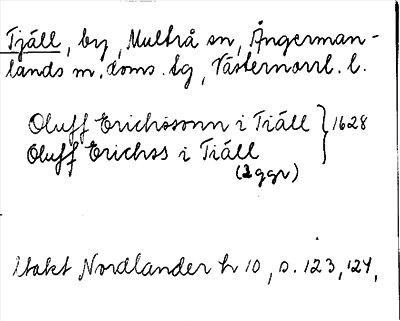 Tjäll, by, Multrå sn, Ångerman-
lands m. doms. tg, Västernorrl. l.
Oluff Erichssonn i Tiäll } 1628
Oluff Erichss i Tiäll
(2 ggr)
Nordlander h 10, s. 123, 124,